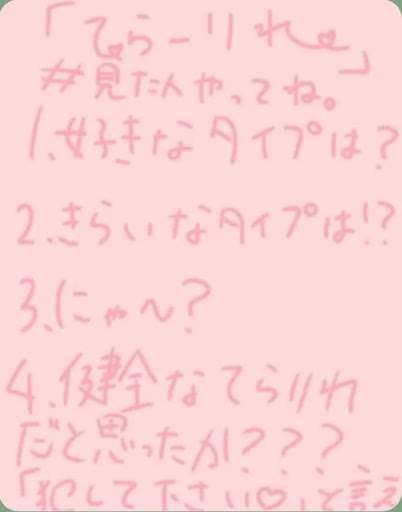 「てらーりれ
」
#見た人やってね。
1.好きなタイプは?
2.きらいなタイプは!?
3.にゃ〜?
4.健全なてらりれ
だと思ったか???
「犯して下さい♡」と言え